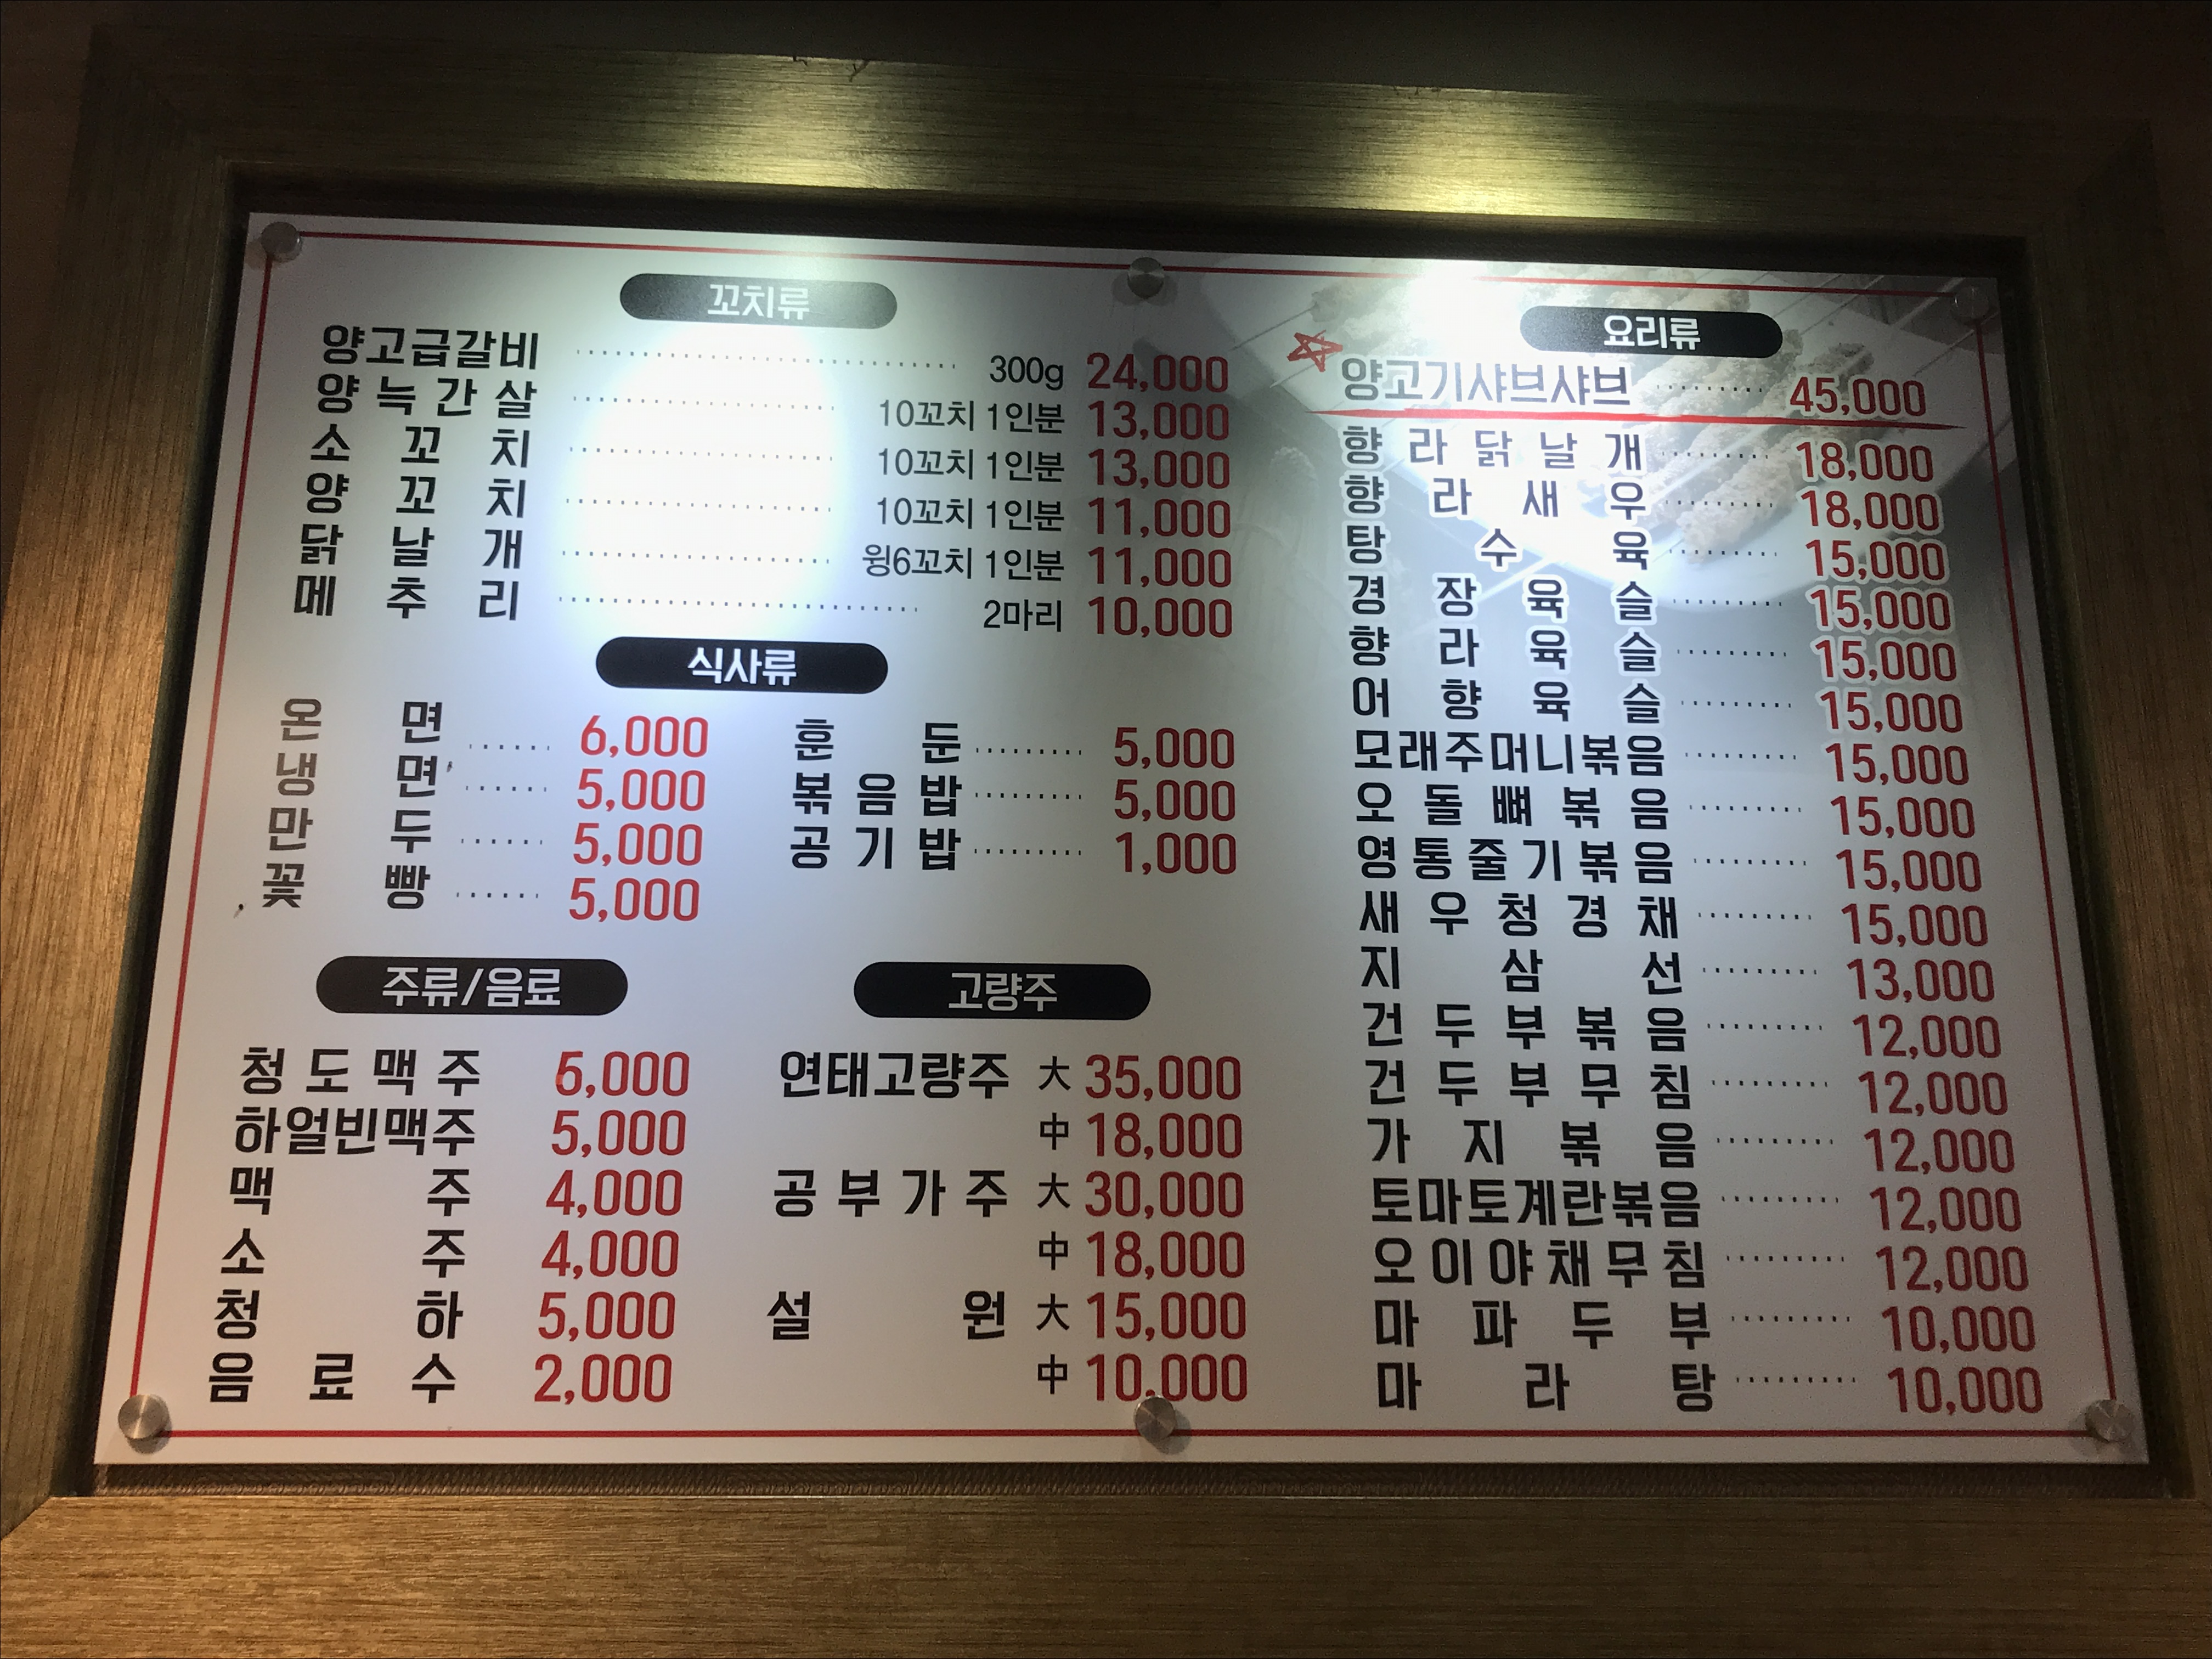 꼬치류
양고급갈비 300g 24,000
양늑간살 10꼬치 1인분 13,000
소꼬치 10꼬치 1인분 13,000
양꼬치 10꼬치 1인분 11,000
닭날개 윙6꼬치 1인분 11,000
메추리 2마리 10,000
식사류
온면 6,000
냉면 5,000
만두 5,000
꽃빵 5,000
훈둔 5,000
볶음밥 5,000
공기밥 1,000
주류/음료
청도맥주 6,000
하얼빈맥주 5,000
맥주 4,000
소주 4,000
청하 5,000
음료수 2,000
고량주
연태고량주 大 35,000
中 18,000
공부가주 大 30,000
中 18,000
설원 大 15,000
中 10,000
요리류
양고기샤브샤브 45,000
향라닭날개 18,000
향라새우 18,000
탕수육 15,000
경장육슬 15,000
향라육슬 15,000
어향육슬 15,000
모래주머니볶음 15,000
오돌뼈볶음 15,000
영통줄기볶음 15,000
새우청경채 15,000
지삼선 13,000
건두부볶음 12,000
건두부무침 12,000
가지볶음 12,000
토마토계란볶음 12,000
오이야채무침 12,000
마파두부 10,000
마라탕 10,000